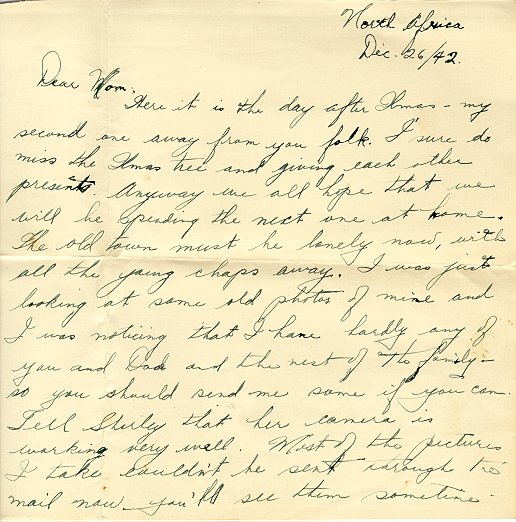 North Africa
Dec. 26/42.
Dear Mom.
Here it is the day after Xmas - my
second one away from you folk. I sure do
miss the Xmas tree and giving each other
presents. Anyway we all hope that we
will be spending the next one at home.
The old town must be lonely now, with
all the young chaps away. I was just
looking at some old photos of mine and
I was noticing that I have hardly any of
you and Dad and the rest of the family -
so you should send me some if you can.
Tell Shirly that her camera is
working very well. Most of the pictures
I take couldn't be sent through the
mail now - you'll see them sometime.